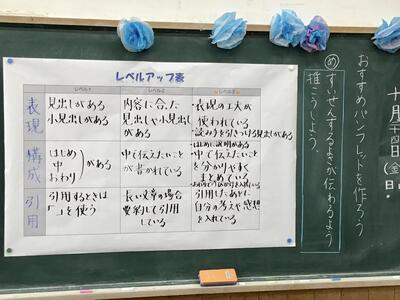 レベルアップ表
レベル1
レベル2
レベル3
表現
見出しがある
小見出しがある
内容に合った
見出しや小見出し
がある
・表現の工夫が
使われている
・読み手を引きつける見出しがある
構成
はじめ
中
おわり
がある
中で伝えたいこと
が書かれている
・はじめに説明がある
・中で伝えたいこと
を分かりやすく
まとめている
引用
引用するときは
「」を使う
長い文章の場合
要約して引用
している
引用したあとに
自分の考えや感想
を入れている
十月二十四日(金)
おすすめパンフレットを作ろう
め すいせんするよさが伝わるよう
推こうしよう。